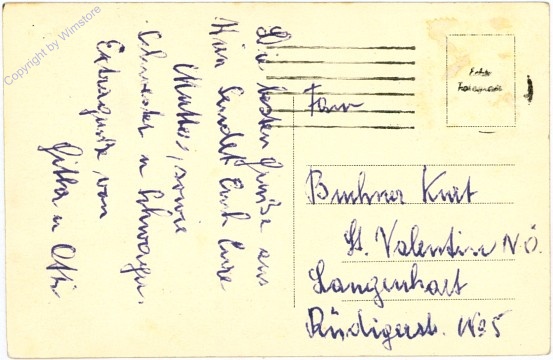 Die besten Grüße aus
Wien sendet Euch Eure
Mutter, sowie
Schwester u Schwager.
Extragrüße von
Gitta u Otti
Echte
Fotografie
Fam
Buchner Kurt
St. Valentin N.Ö.
Langenhart
Rüdigerstr. No 5
Copyright by Wimstore